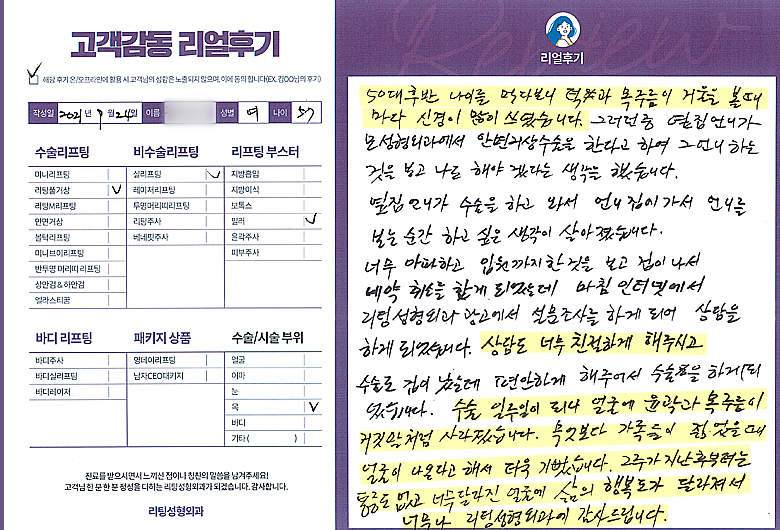 고객감동 리얼후기
해당 후기 온/오프라인에 활용 시 고객님의 성함은 노출되지 않으며, 이에 동의 합니다(EX.김OO님의 후기)
작성일 2021년 9월 24일 이름 성별 여 나이 57
수술리프팅 비수술리프팅 리프팅 부스터
미니리프팅 실리프팅 지방흡입
리팅풀거상 레이저리프팅 지방이식
리팅M리프팅 투명머리띠리프팅 보톡스
안면거상 리팅주사 필러
볼턱리프팅 베네핏주사 윤곽주사
미니브이리프팅 피부주사
반투명 머리띠 리프팅
상안검 & 하안검
얼라스티꿈
바디 리프팅 패키지 상품 수술/시술 부위
바디주사 영데이리프팅 얼굴
바디실리프팅 남자CEO패키지 이마
바디레이저 눈
목
바디
기타( )
진료를 받으시면서 느끼신 점이나 칭찬의 말씀을 남겨주세요!
고객님 한 분 한 분 정성을 다하는 리팅성형외과가 되겠습니다. 감사합니다.
리팅성형외과
리얼후기
50대후반 나이를 먹다보니 턱살과 목주름이 거울을 볼때
마다 신경이 많이 쓰였습니다. 그러던중 옆집언니가
모성형외과에서 안면거상수술을 한다고 하여 그언니 하는
것을 보고 나도 해야 겠다는 생각을 했습니다.
옆집언니가 수술을 하고 와서 언니집에가서 언니를
보는 순간 하고 싶은 생각이 살아졌습니다.
너무 아파하고 입원까지한것을 보고 겁이 나서
예약 취소를 할게 되었는데 마침 인터넷에서
리팅성형외과 광고에서 설문조사를 하게 되어 상담을
하게 되었습니다. 상담도 너무 친절하게 해주시고
수술도 겁이 났는데 편안하게 해주어서 수술을 하게 되
었습니다. 수술 일주일이 되니 얼굴에 윤곽과 목주름이
거짓말처럼 사라졌습니다. 무엇보다 가족들이 젊었을때
얼굴이 나온다고 해서 더욱 기뻤습니다. 2주가 지난후부터는
통증도 없고 너무달라진 얼굴에 삶의 행복도가 달라져서
너무나 리팅성형외과에 감사드립니다.